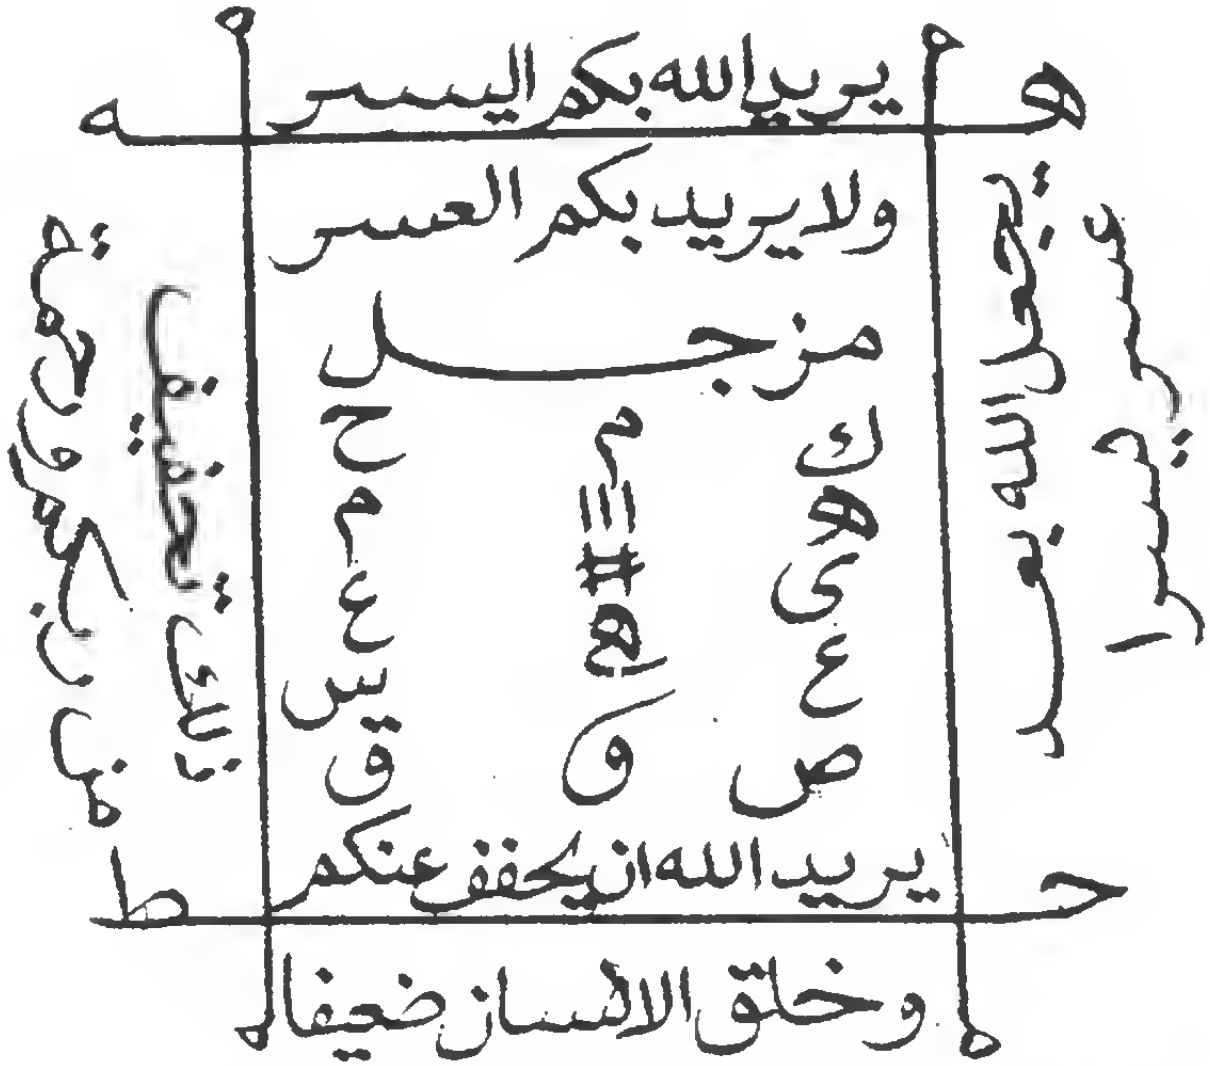 ه
يريد الله بكم اليسر
ه
ولا يريد بكم العسر
مزجل
ك م ح
ه ااا م
ى # ع
ع ه س
ص و ق
يريد الله ان يخفف عنكم
ح
ط
وخلق الانسان ضعيفا
يجعل الله بعد
عسر يسرا
ذلك تخفيف
من ربكم ورحمة